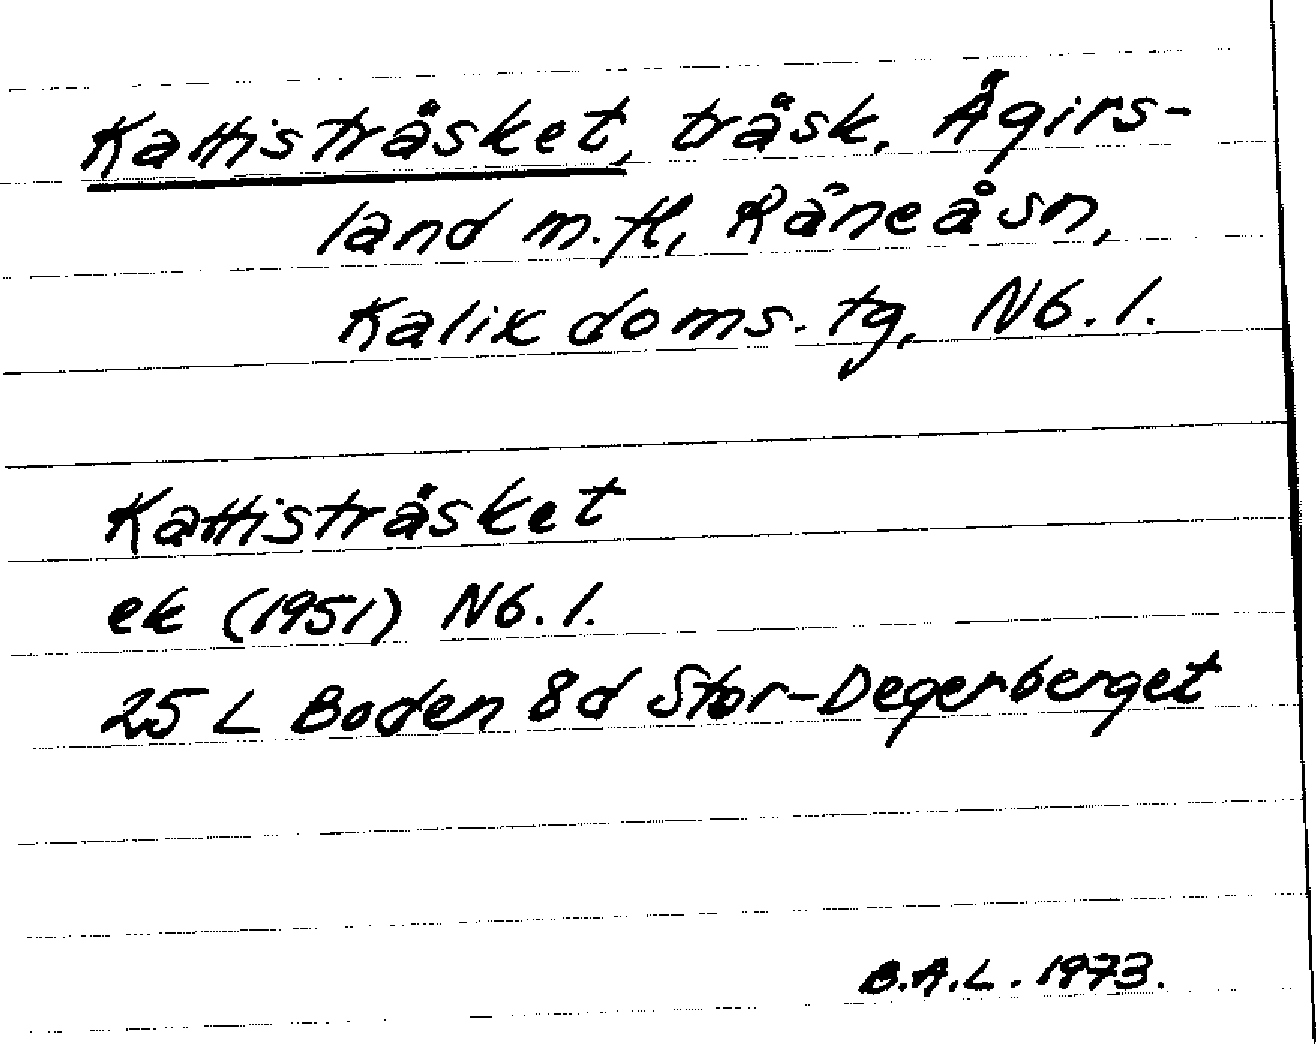 Kattisträsket, träsk, Ägirs-
land m.fl., Råneå sn,
Kalix doms. tg, Nb. l.
Kattisträsket
ek (1951) Nb. l.
25 L Boden 8d Stor-Degerberget
B.A.L. 1973.